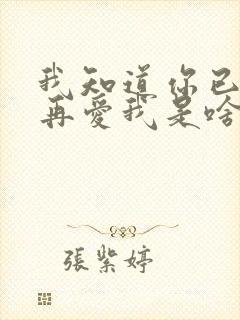 我知道你已
再愛我是啥
張紫婷